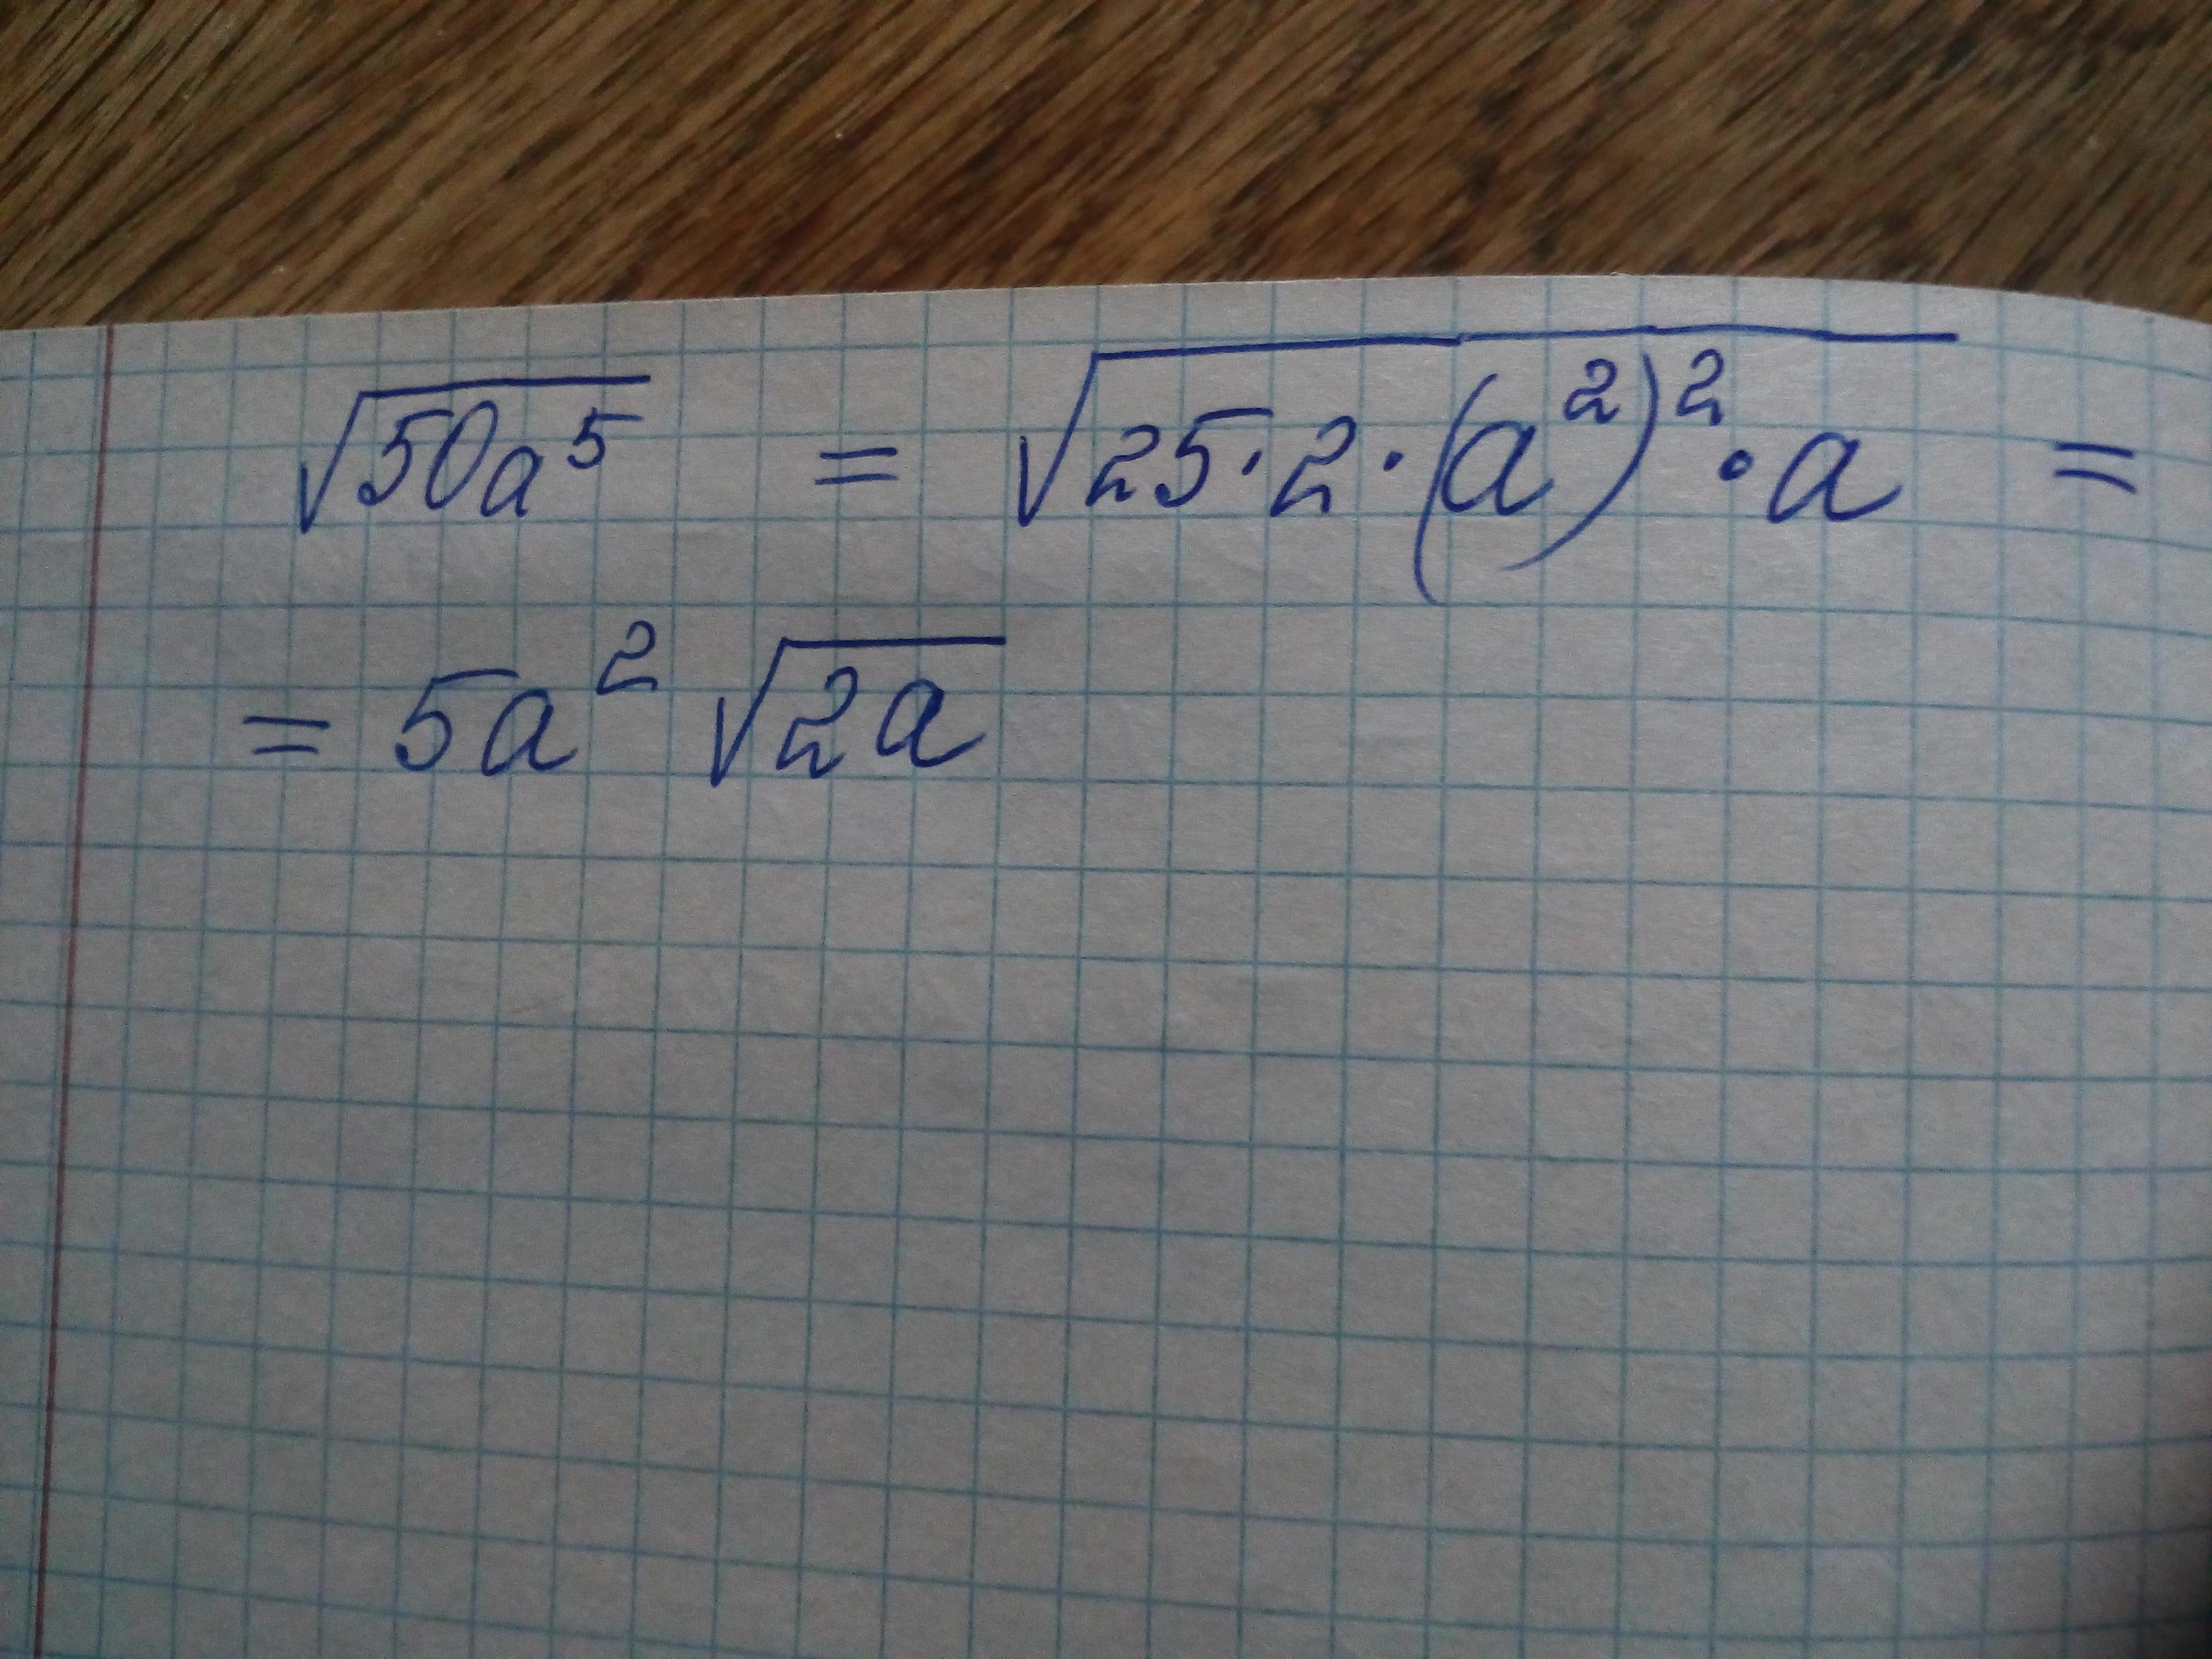 √50a⁵ = √25·2·(a²)²·a =
= 5a² √2a